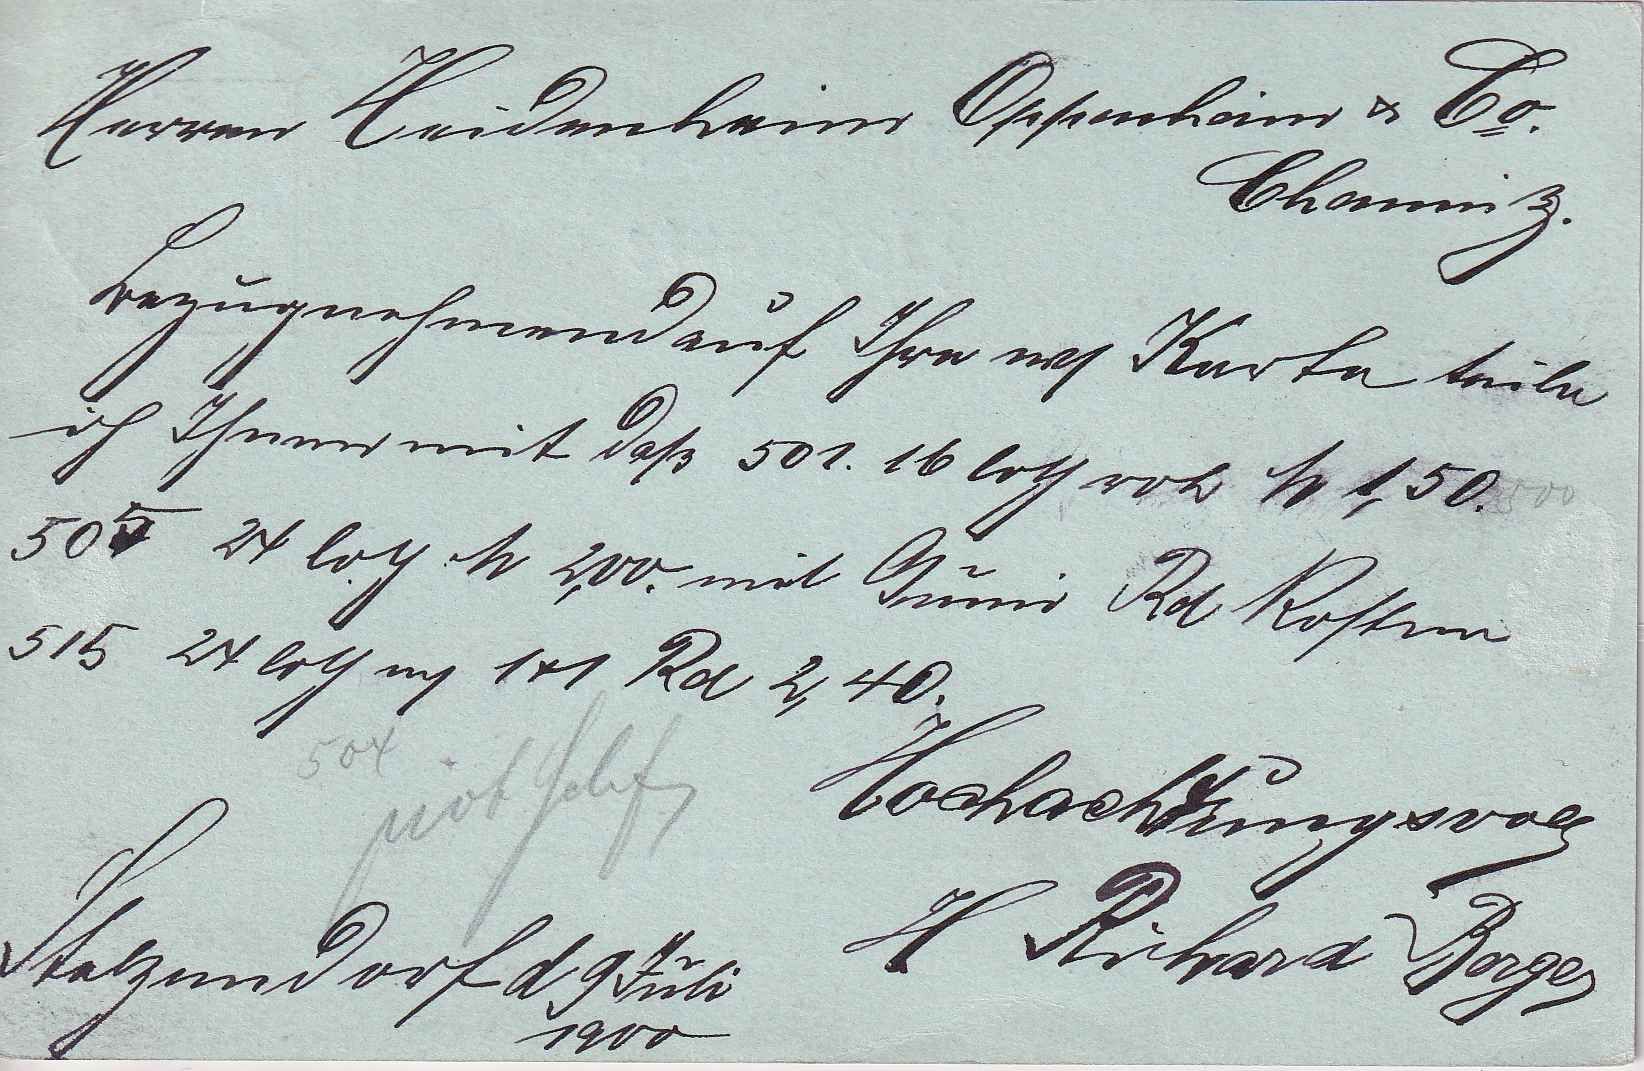 Herren Heidenheim Oppenheim & Co.
Chemnitz.
Bezugnehmend auf Ihre Karte teile
ich Ihnen mit daß 501. 16 loth roh M 1,50.
505 24 loth M 2,00. mit Rd Kosten
515 24 loth 1+1 Rd 2,40.
504
Hochachtungsvoll
H Richard Berger
Stelzendorf d 9 Juli
1900